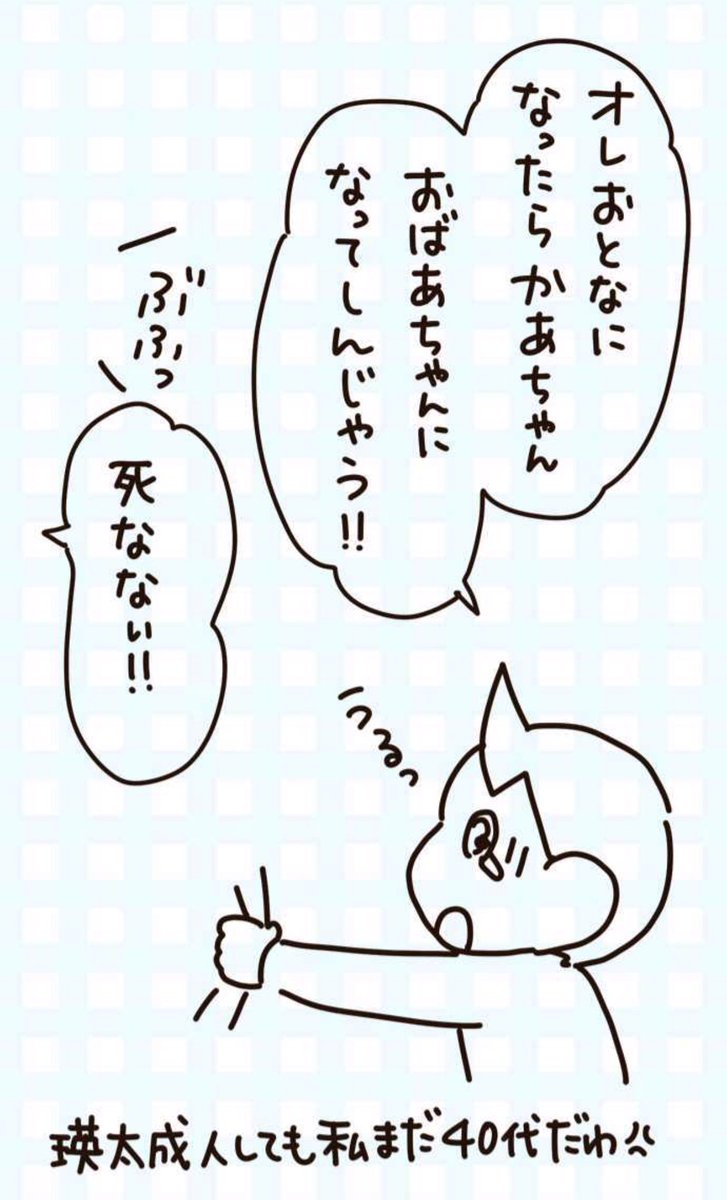 オレおとなに
なったらかあちゃん
おばあちゃんに
なってしんじゃう!!
ぶふっ
死なない!!
うるっ
瑛太成人しても私まだ40代だわ